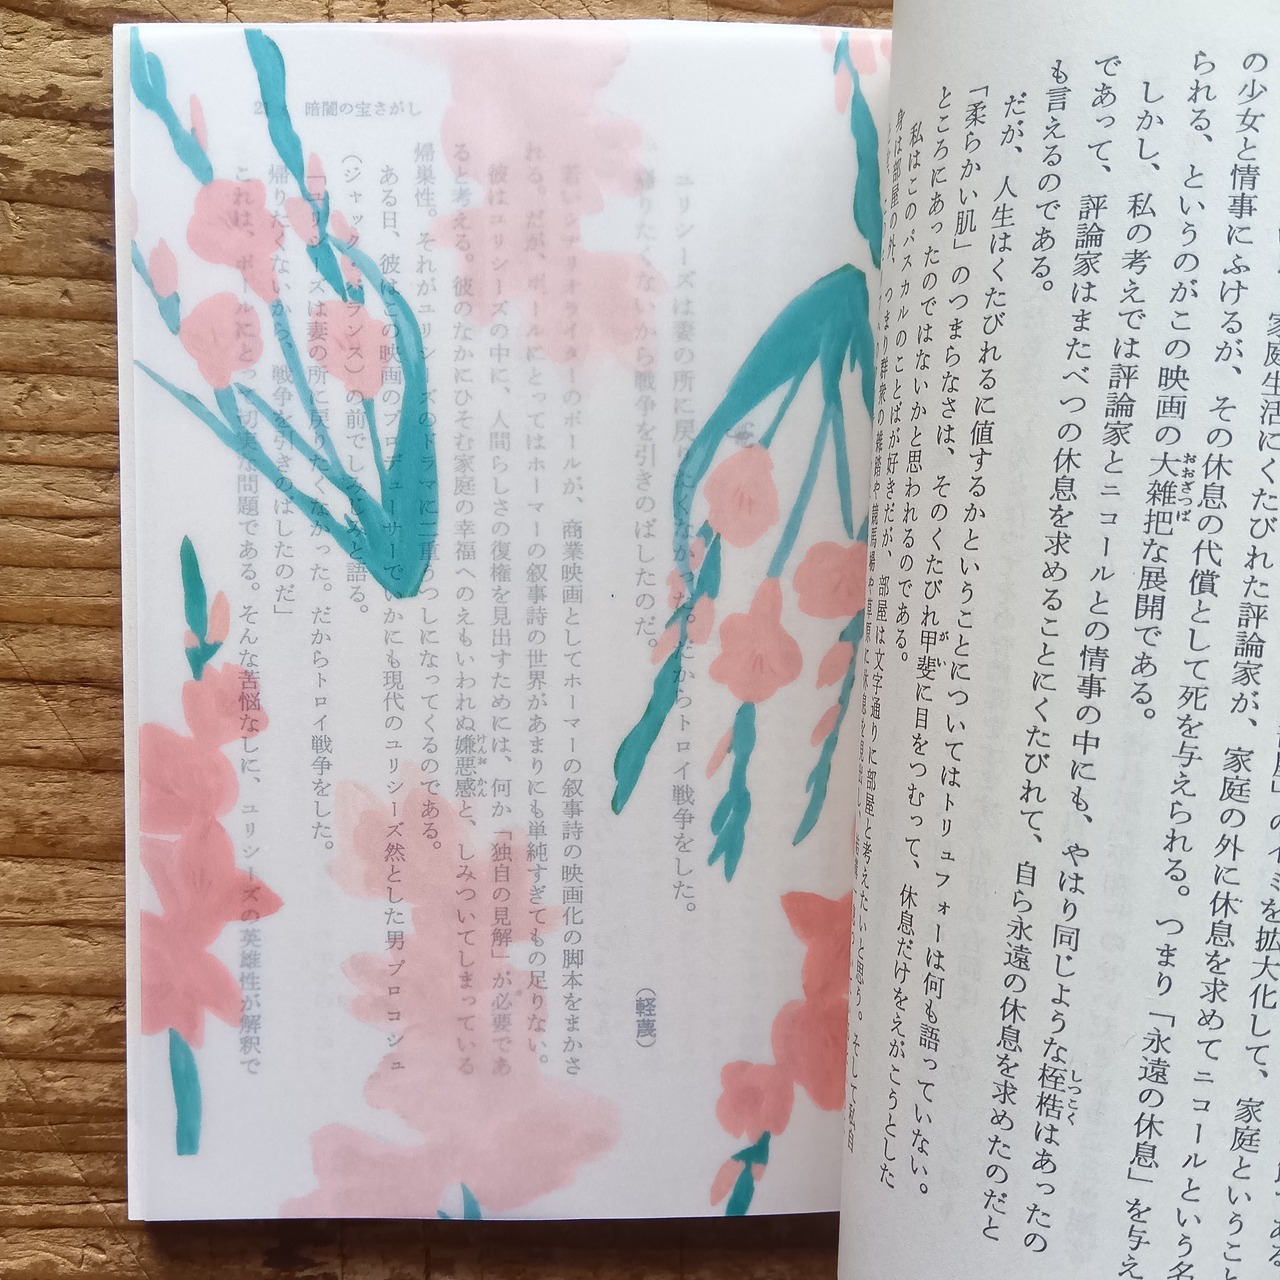 の少女と情事にふけるが、その休息の代償として死を与えられる。つまり「永遠の休息」を与え
られる、というのがこの映画の大雑把な展開である。
しかし、私の考えでは評論家とニコールとの情事の中にも、やはり同じような桎梏はあったの
であって、評論家はまたべつの休息を求めることにくたびれて、自ら永遠の休息を求めたのだと
も言えるのである。
だが、人生はくたびれるに値するかということについてはトリュフォーは何も語っていない。
「柔らかい肌」のつまらなさは、そのくたびれ甲斐に目をつむって、休息だけをえがこうとした
ところにあったのではないかと思われるのである。
私はこのパスカルのことばが好きだが、部屋は文字通りに部屋と考えたいと思う。そして私自
身は部屋の外、つまり群衆の雑踏や競馬場や草原に休息を見出し
暗闇の宝さがし
ユリシーズは妻の所に戻りたくなかった。だからトロイ戦争をした。
帰りたくないから戦争を引きのばしたのだ。
（軽蔑）
若いシナリオライターのポールが、商業映画としてホーマーの叙事詩の映画化の脚本をまかさ
れる。だが、ポールにとってはホーマーの叙事詩の世界があまりにも単純すぎてもの足りない。
彼はユリシーズの中に、人間らしさの復権を見出すためには、何か「独自の見解」が必要であ
ると考える。彼のなかにひそむ家庭の幸福へのえもいわれぬ嫌悪感と、しみついてしまっている
帰巣性。それがユリシーズのドラマに二重うつしになってくるのである。
ある日、彼はこの映画のプロデューサーでいかにも現代のユリシーズ然とした男プロコシュ
（ジャック・パランス）の前でしみじみと語る。
「ユリシーズは妻の所に戻りたくなかった。だからトロイ戦争をした。
帰りたくないから、戦争を引きのばしたのだ」
これは、ポールにとって切実な問題である。そんな苦悩なしに、ユリシーズの英雄性が解釈で